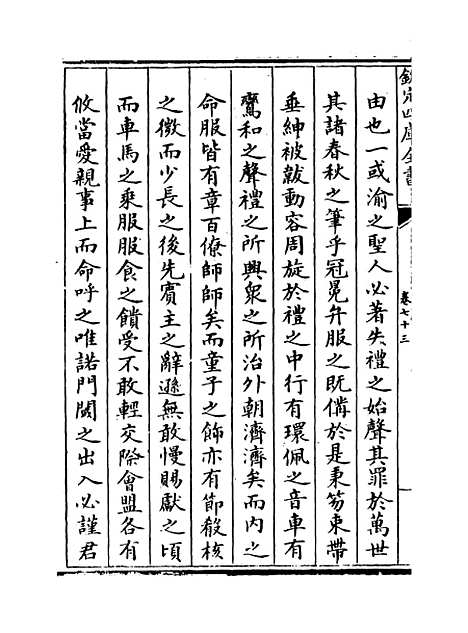 欽定四庫全書
卷七十三
由也一或渝之聖人必著失禮之始聲其罪於萬世
其諸春秋之筆乎冠冕弁服之既僃於是秉笏束帶
垂紳被韍動容周旋於禮之中行有環佩之音車有
鸞和之聲禮之所興衆之所治外朝濟濟矣而内之
命服皆有章百僚師師矣而童子之飾亦有節殽核
之微而少長之後先賓主之辭遜無敢慢賜獻之頃
而車馬之乘服服食之饋受不敢輕交際會盟各有
攸當愛親事上而命呼之唯諾門閾之出入必謹君